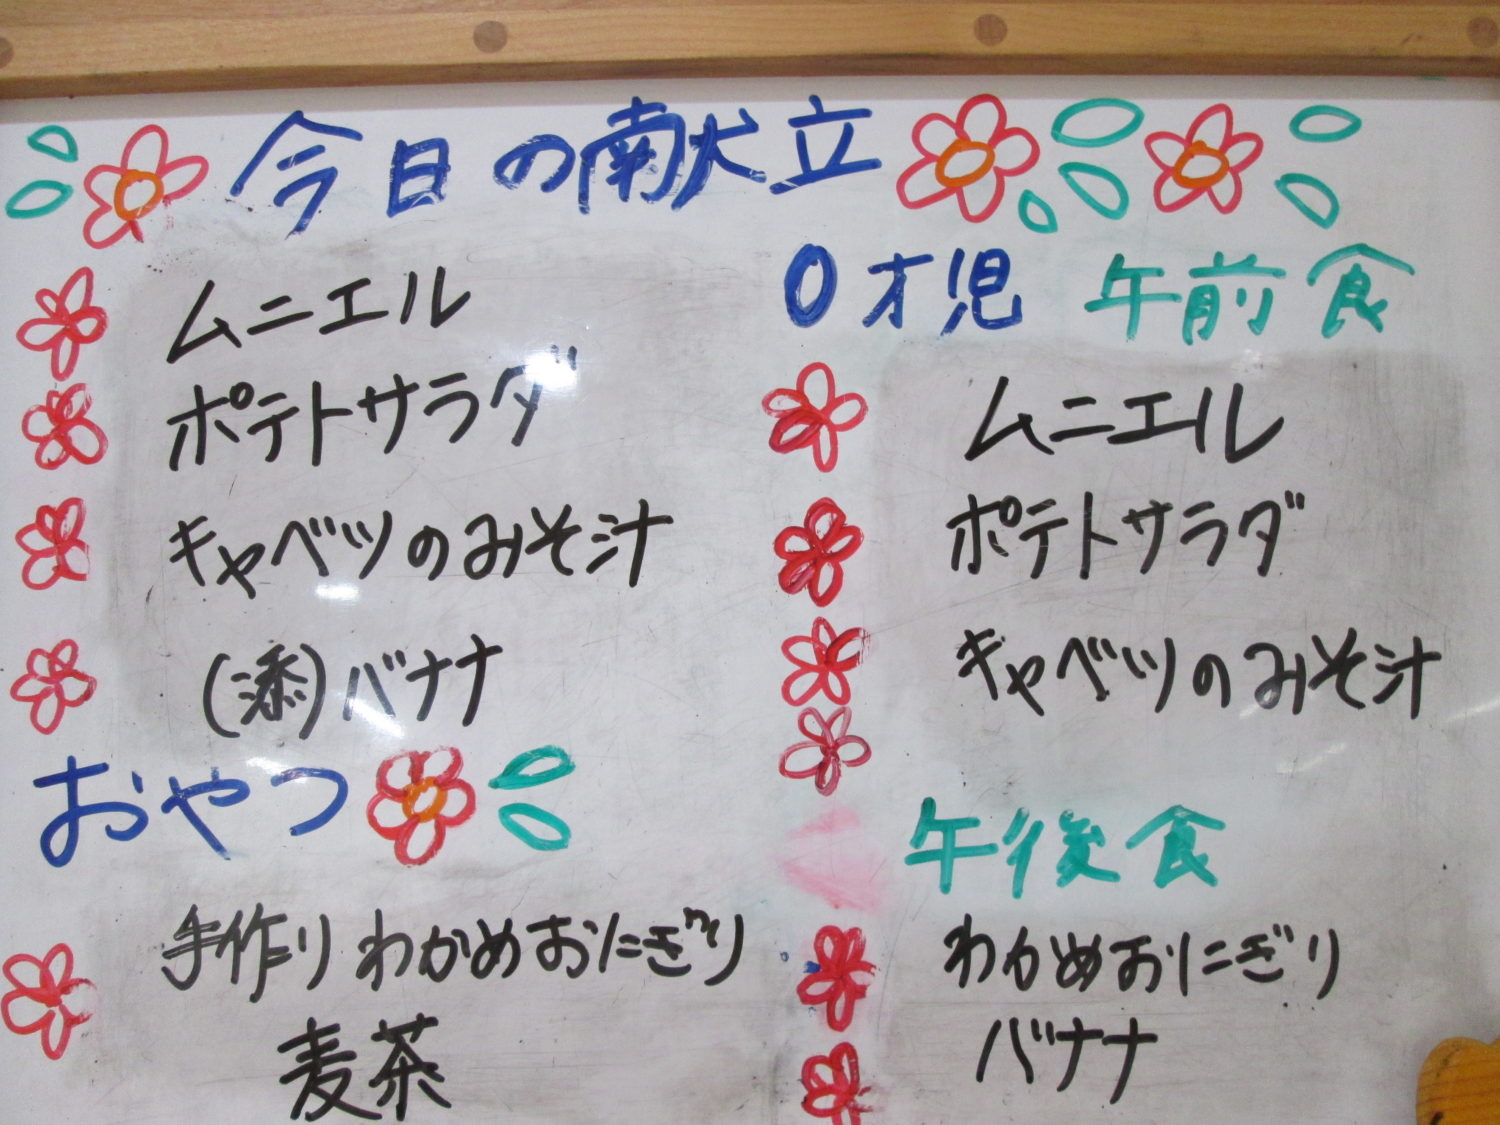 今日の献立
ムニエル
ポテトサラダ
キャベツのみそ汁
(添)バナナ
おやつ
手作りわかめおにぎり
麦茶
0才児 午前食
ムニエル
ポテトサラダ
キャベツのみそ汁
午後食
わかめおにぎり
バナナ